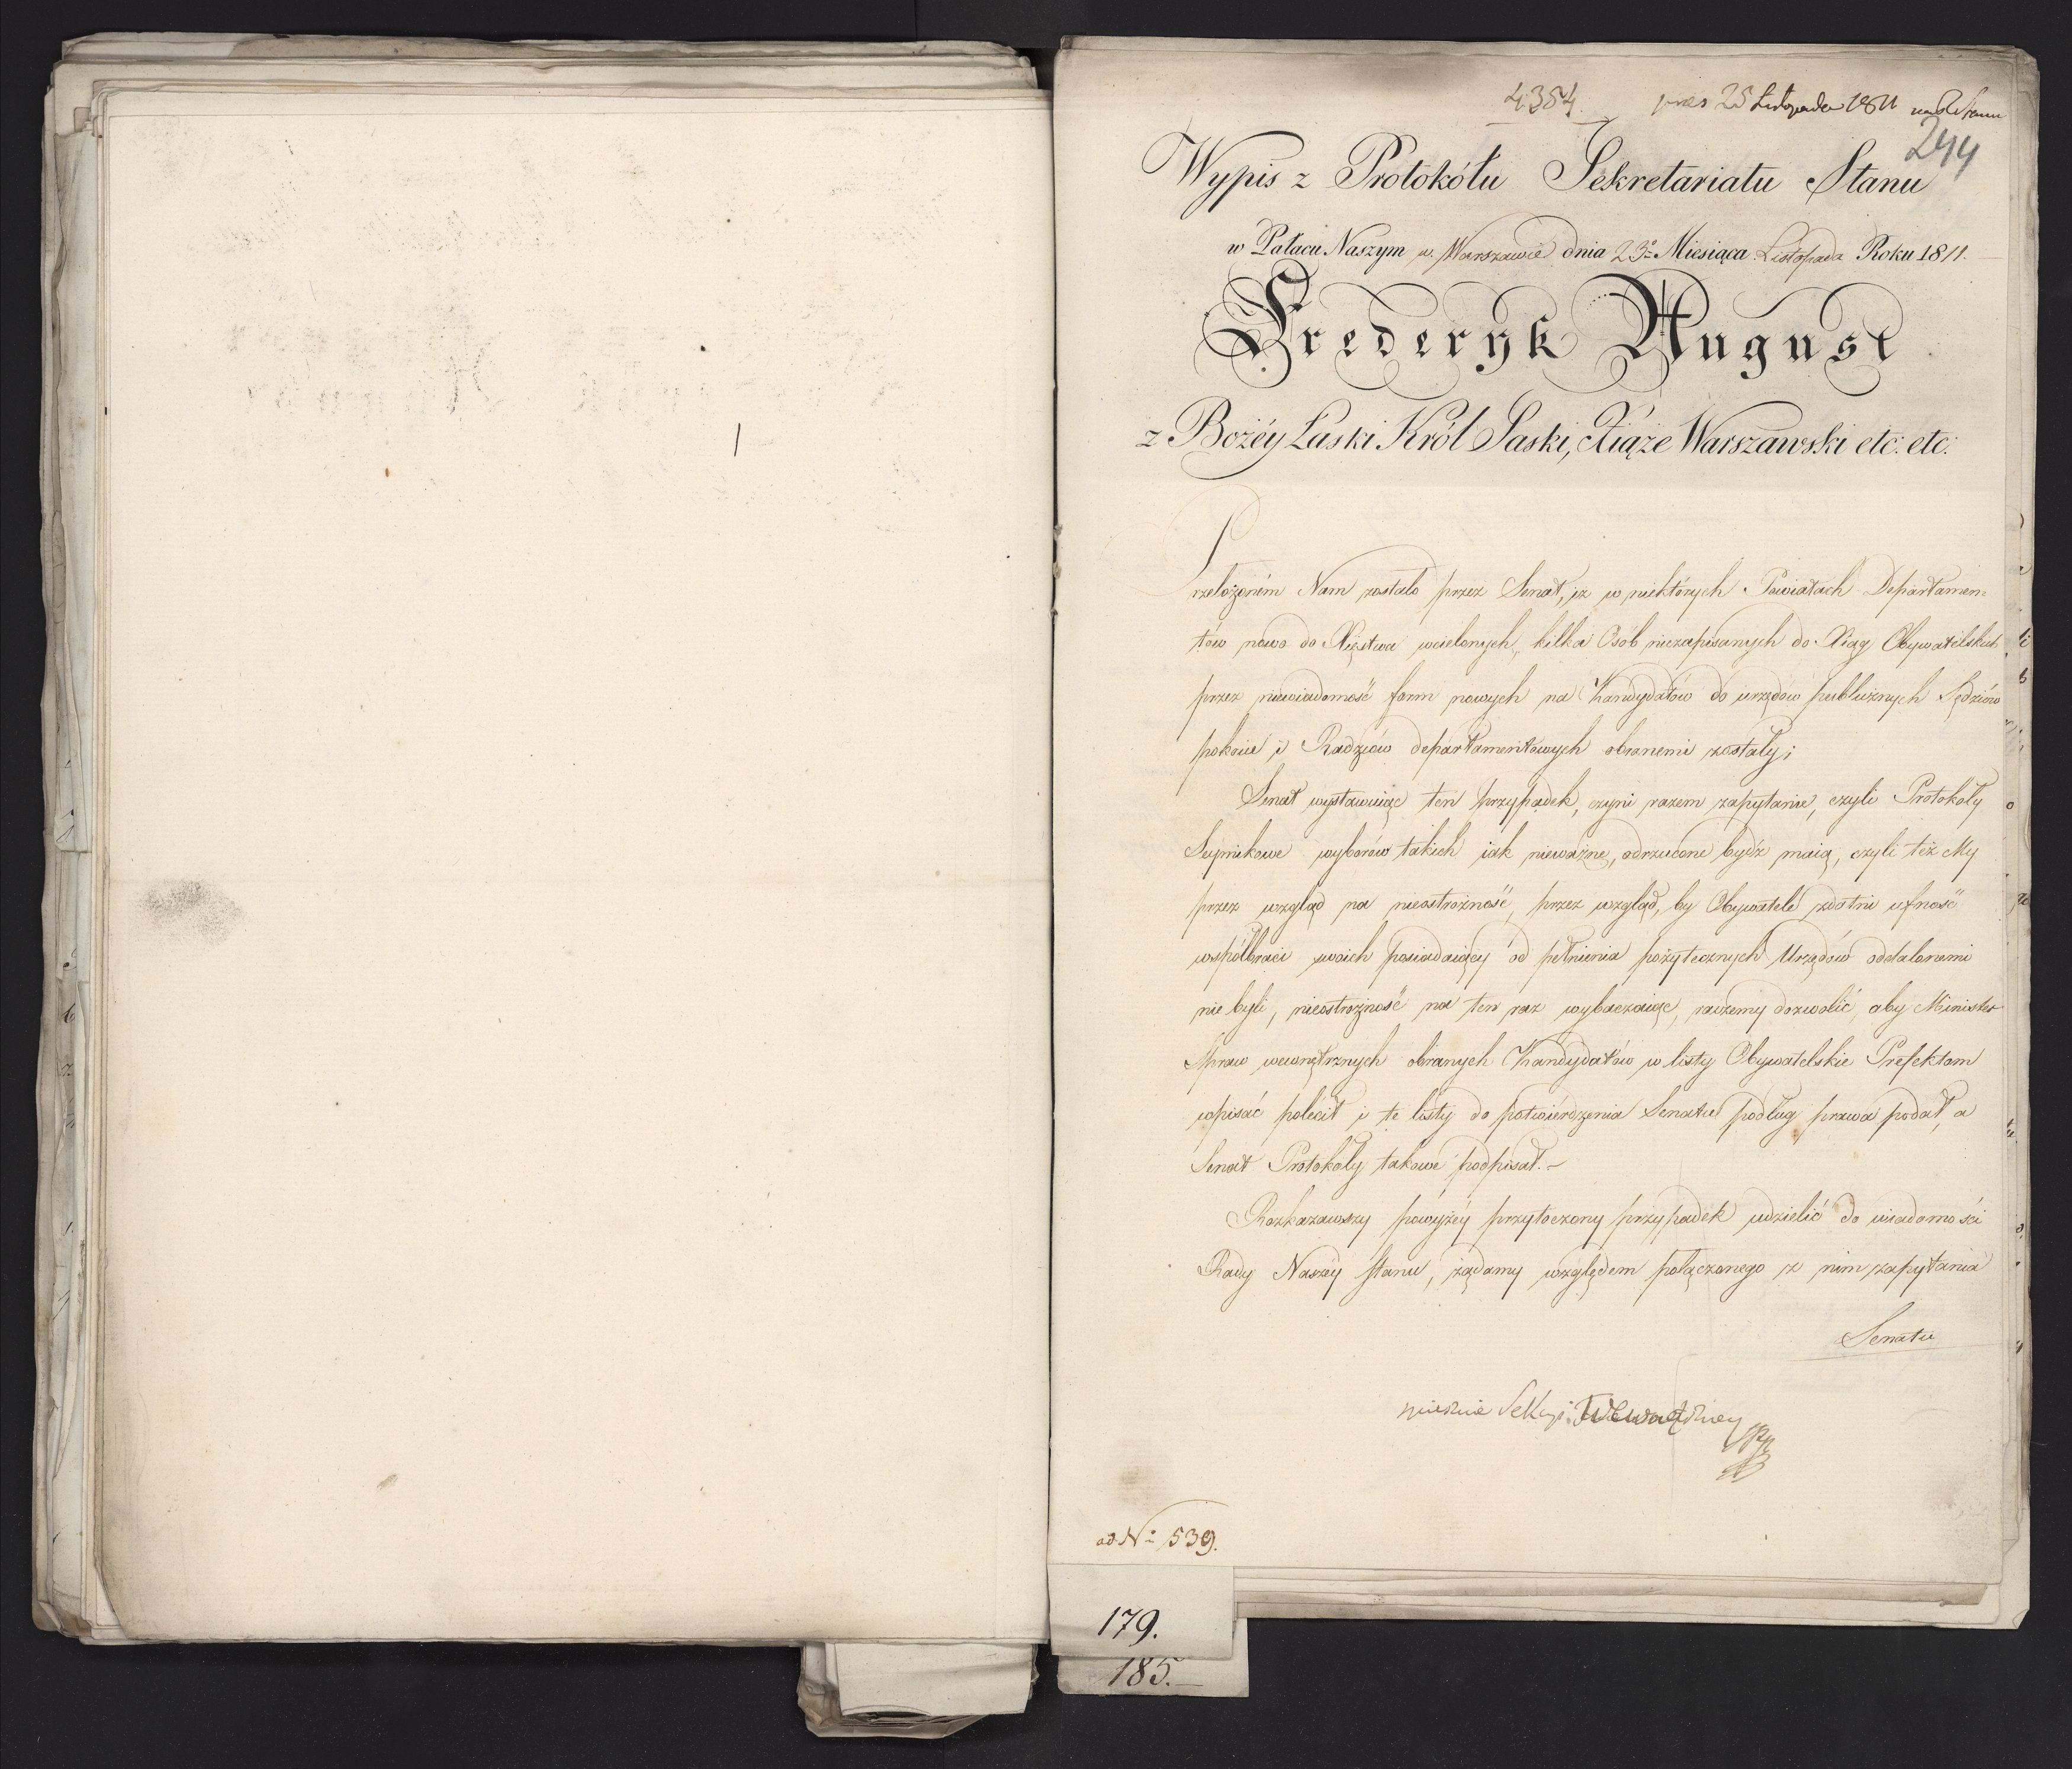 4354. pres 25 Listopada 1811 na R Stanu
244
Wypis z Protokółu Sekretariatu Stanu
w Pałacu Naszym w Warszawie dnia 23º Miesiąca Listopada Roku 1811.
Fryderyk August
z Bożéy Łaski Król Saski, Xiąże Warszawski etc: etc:
Przełożoném Nam zostało przez Senat, iż w niektórych Powiatach Departamen=
tów nowo do Xięstwa wcielonych, kilka Osób niezapisanych do Xiąg Obywatelskich
przez niewiadomość form nowych na Kandydatów do urzędów publicznych Sędziów
pokoiu i Radzców departamentowych obranemi zostały;
Senat wystawuiąc ten przypadek, czyni razem zapytanie, czyli Protokóły
Seymikowe wyborów takich iak nieważne, odrzucone bydź maią, czyli też My
przez wzgląd na nieostrożność, przez wzgląd, by Obywatele zdatni ufność
współbraci swoich posiadaiący od pełnienia pożytecznych Urzędów oddalonemi
nie byli, nieostrożność na ten raz wybaczaiąc, raczemy dozwolić, aby Minister
Spraw wewnętrznych obranych Kandydatów w listy Obywatelskie Prefektom
wpisać polécił i te listy do potwierdzenia Senatu podług prawa podał, a
Senat Protokóły takowe podpisał.-
Rozkazawszy powyżéy przytoczony przypadek udzielić do wiadomości
Rady Naszéy Stanu, żądamy względem połączonego z nim zapytania
Senatu
Sekcyi Wewnętrzney
ad Nº 539.
179.
185.